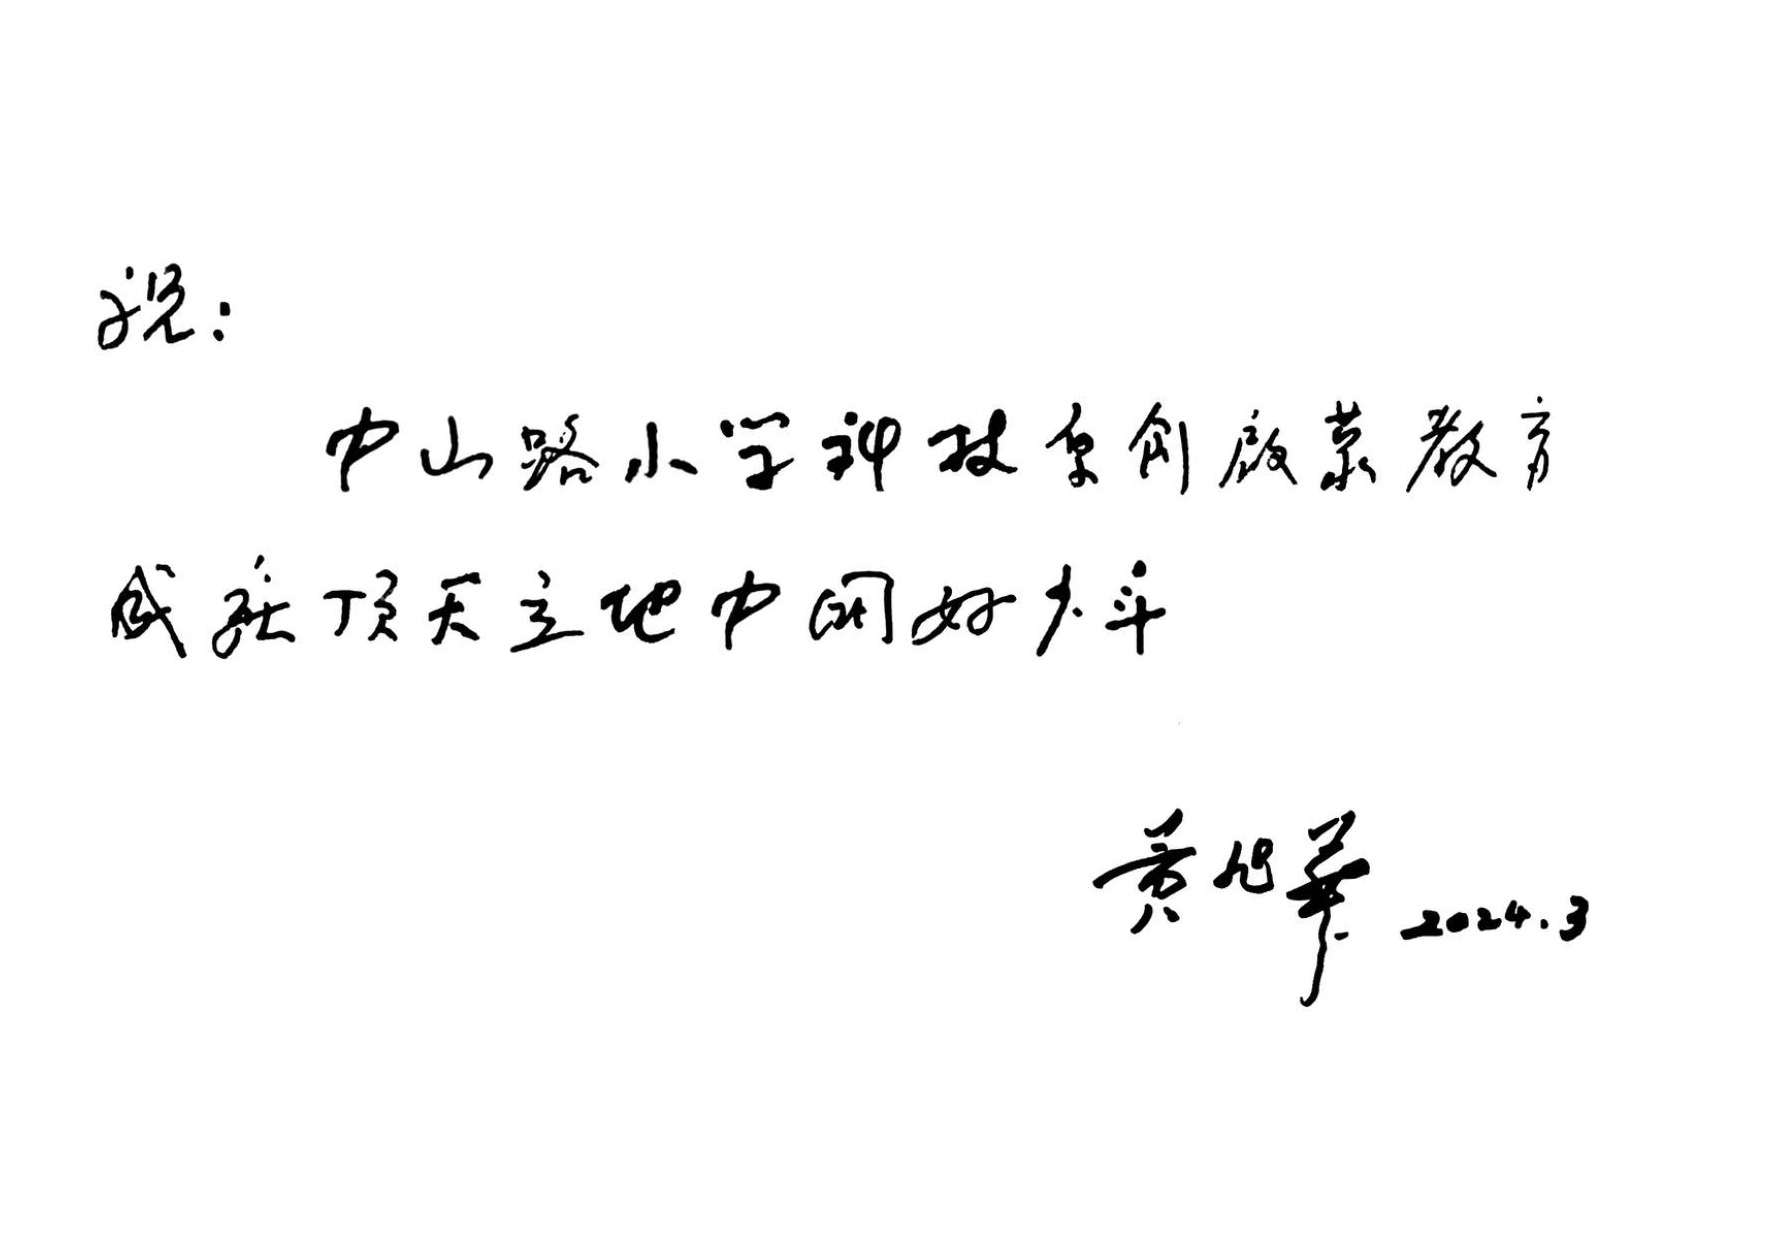 祝:
中山路小学科技原创啟蒙教育
成就顶天立地中国好少年
黄旭華 2024.3